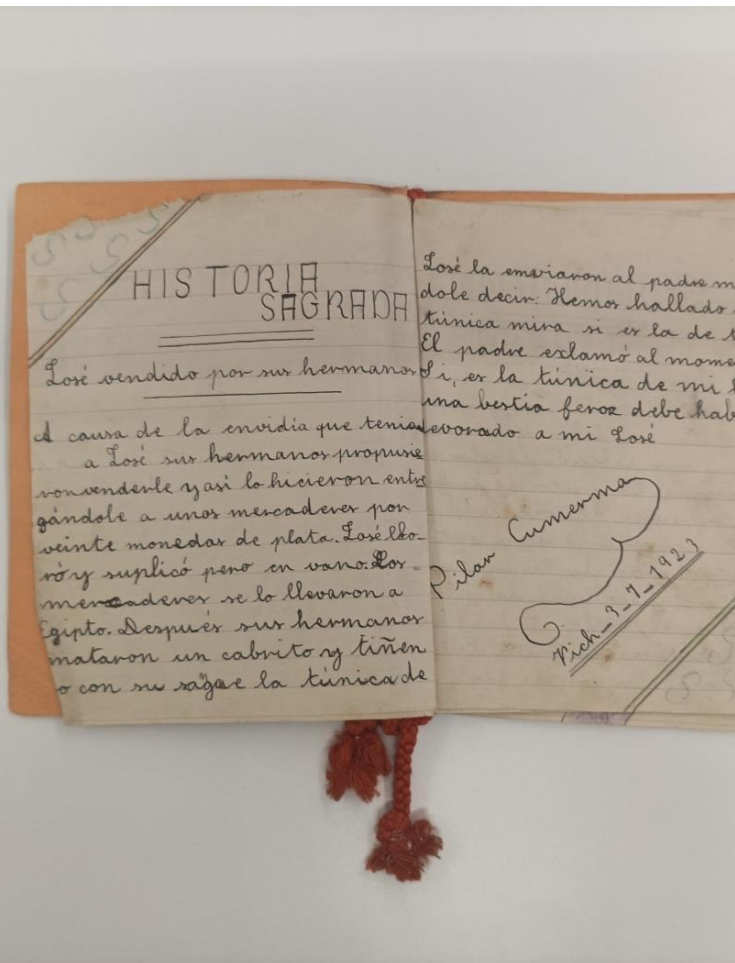 HISTORIA
SAGRADA
José vendido por sus hermanos
A causa de la envidia que tenian
a José sus hermanos propusie
ron venderle y asi lo hicieron entre
gándole a unos mercaderes por
veinte monedas de plata. José llo-
ró y suplicó pero en vano. Los
mercaderes se lo llevaron a
Egipto. Después sus hermanos
mataron un cabrito y tiñen
o con su sagre la túnica de
José la enviaron al padre m
dole decir: Hemos hallado
túnica mira si es la de t
El padre exclamó al mome
Si, es la túnica de mi
una bestia feroz debe hab
devorado a mi José
Pilar Cumerma
Vich_3_7_1923